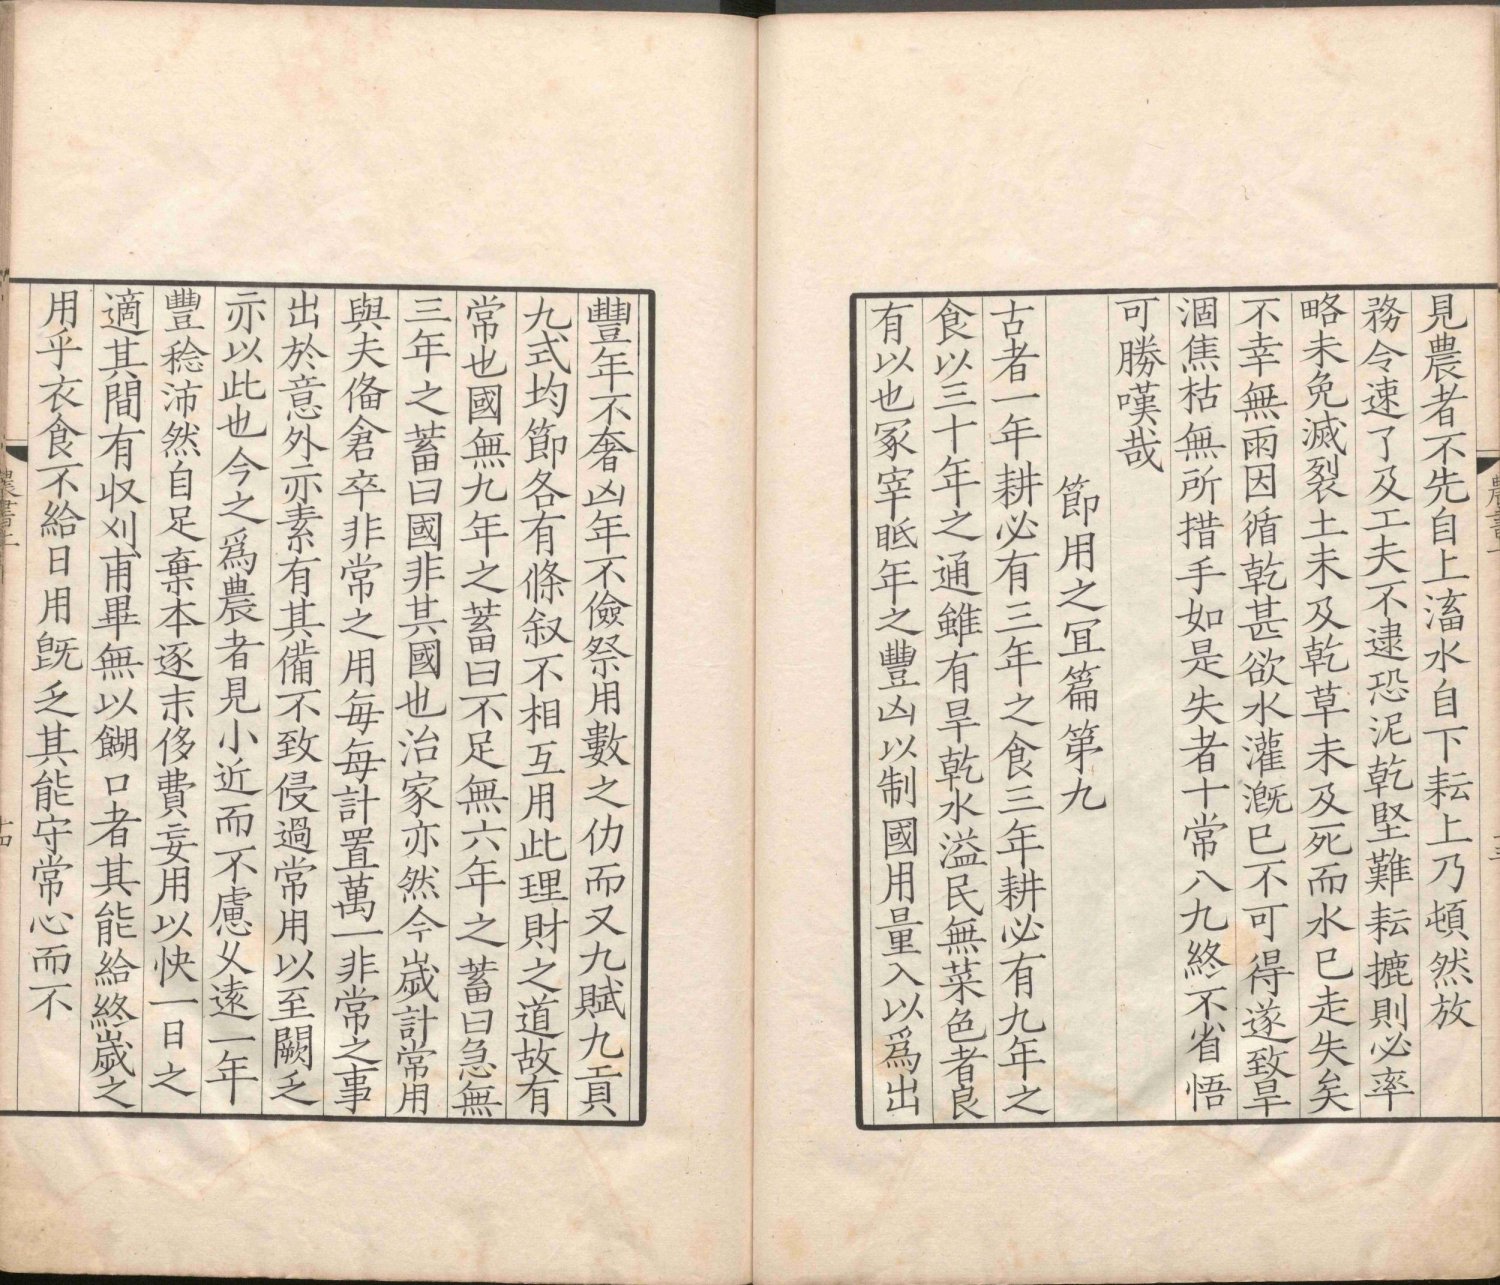 見農者不先自上滀水自下耘上乃頓然放
務令速了及工夫不逮恐泥乾堅難耘摝則必率
略未免滅裂土未及乾草未及死而水已走失矣
不幸無雨因循乾甚欲水灌溉已不可得遂致旱
涸焦枯無所措手如是失者十常八九終不省悟
可勝嘆哉
節用之冝篇第九
古者一年耕必有三年之食三年耕必有九年之
食以三十年之通雖有旱乾水溢民無菜色者良
有以也冢宰眂年之豐凶以制國用量入以為出
豐年不奢凶年不儉祭用數之仂而又九賦九貢
九式均節各有條叙不相互用此理財之道故有
常也國無九年之蓄曰不足無六年之蓄曰急無
三年之蓄曰國非其國也治家亦然今歲計常用
與夫俻倉卒非常之用每每計置萬一非常之事
出於意外亦素有其備不致侵過常用以至闕乏
亦以此也今之為農者見小近而不慮久遠一年
豐稔沛然自足棄本逐末侈費妄用以快一日之
適其間有収刈甫畢無以餬口者其能給終歲之
用乎衣食不給日用既乏其能守常心而不
農書上
十四